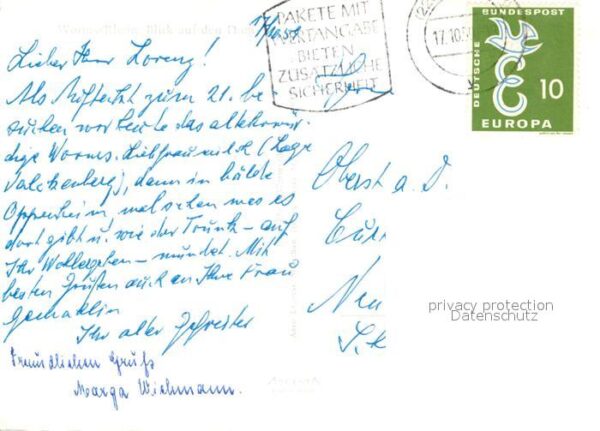 Worms/Rhein, Blick auf den
17/10.58
Lieber Herr Lorenz!
Als Auftakt zum 21. be-
suchen wir heute das altehrwür-
dige Worms. Liebfraumilch (Lage
Valckenberg), dann in bälde
Oppenheim, mal sehen was es
dort gibt u. wie der Trunk – auf
Ihr Wohlergehen – mundet. Mit
besten Grüßen auch an Ihre Frau
Gemahlin
Ihr alter Gefreiter
Freundlichen Gruß
Marga Wichmann.
PAKETE MIT
WERTANGABE
BIETEN
ZUSÄTZLICHE
SICHERHEIT
17.10.
DEUTSCHE BUNDESPOST
10
EUROPA
Oberst a. D.
Neu
privacy protection
Datenschutz